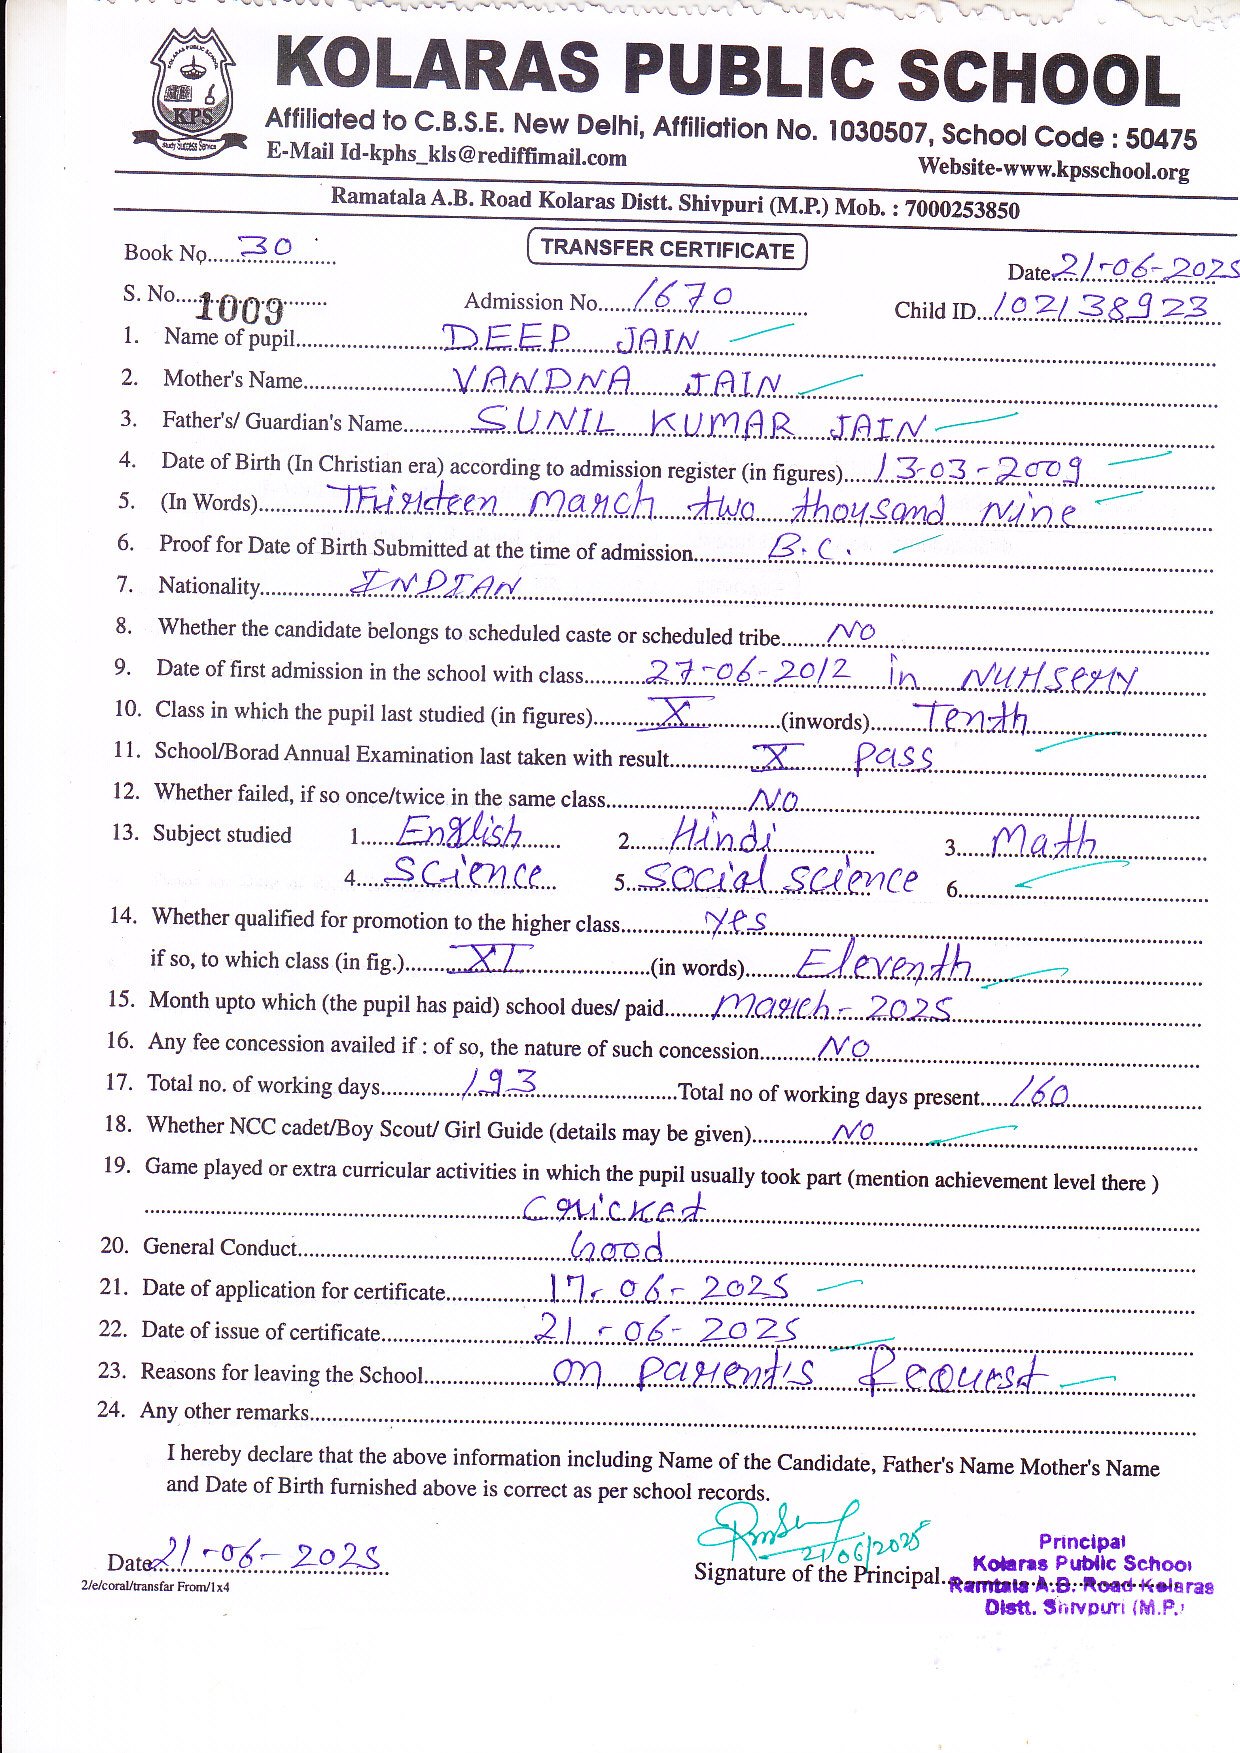 KOLARAS PUBLIC SCHOOL
KPS
Affiliated to C.B.S.E. New Delhi, Affiliation No. 1030507, School Code : 50475
E-Mail Id-kphs_kls@rediffimail.com Website-www.kpsschool.org
Ramatala A.B. Road Kolaras Distt. Shivpuri (M.P.) Mob. : 7000253850
Book No. 30 TRANSFER CERTIFICATE Date 21-06-2025
S. No. 1009 Admission No. 1670 Child ID 102138923
1. Name of pupil DEEP JAIN
2. Mother's Name VANDNA JAIN
3. Father's/ Guardian's Name SUNIL KUMAR JAIN
4. Date of Birth (In Christian era) according to admission register (in figures) 13-03-2009
5. (In Words) Thirteen March two thousand Nine
6. Proof for Date of Birth Submitted at the time of admission B.C.
7. Nationality INDIAN
8. Whether the candidate belongs to scheduled caste or scheduled tribe NO
9. Date of first admission in the school with class 27-06-2012 in Nursery
10. Class in which the pupil last studied (in figures) X (inwords) Tenth
11. School/Borad Annual Examination last taken with result X Pass
12. Whether failed, if so once/twice in the same class NO
13. Subject studied 1 English 2 Hindi 3 Math
4 Science 5 Social Science 6
14. Whether qualified for promotion to the higher class yes
if so, to which class (in fig.) XI (in words) Eleventh
15. Month upto which (the pupil has paid) school dues/ paid March - 2025
16. Any fee concession availed if : of so, the nature of such concession NO
17. Total no. of working days 193 Total no of working days present 160
18. Whether NCC cadet/Boy Scout/ Girl Guide (details may be given) NO
19. Game played or extra curricular activities in which the pupil usually took part (mention achievement level there )
Cricket
20. General Conduct Good
21. Date of application for certificate 17-06-2025
22. Date of issue of certificate 21-06-2025
23. Reasons for leaving the School on Parent's Request
24. Any other remarks
I hereby declare that the above information including Name of the Candidate, Father's Name Mother's Name
and Date of Birth furnished above is correct as per school records.
21/06/2025
Date 21-06-2025 Signature of the Principal
2/e/coral/transfar From/1x4
Principal
Kolaras Public School
Ramtala A.B. Road Kolaras
Distt. Shivpuri (M.P.)